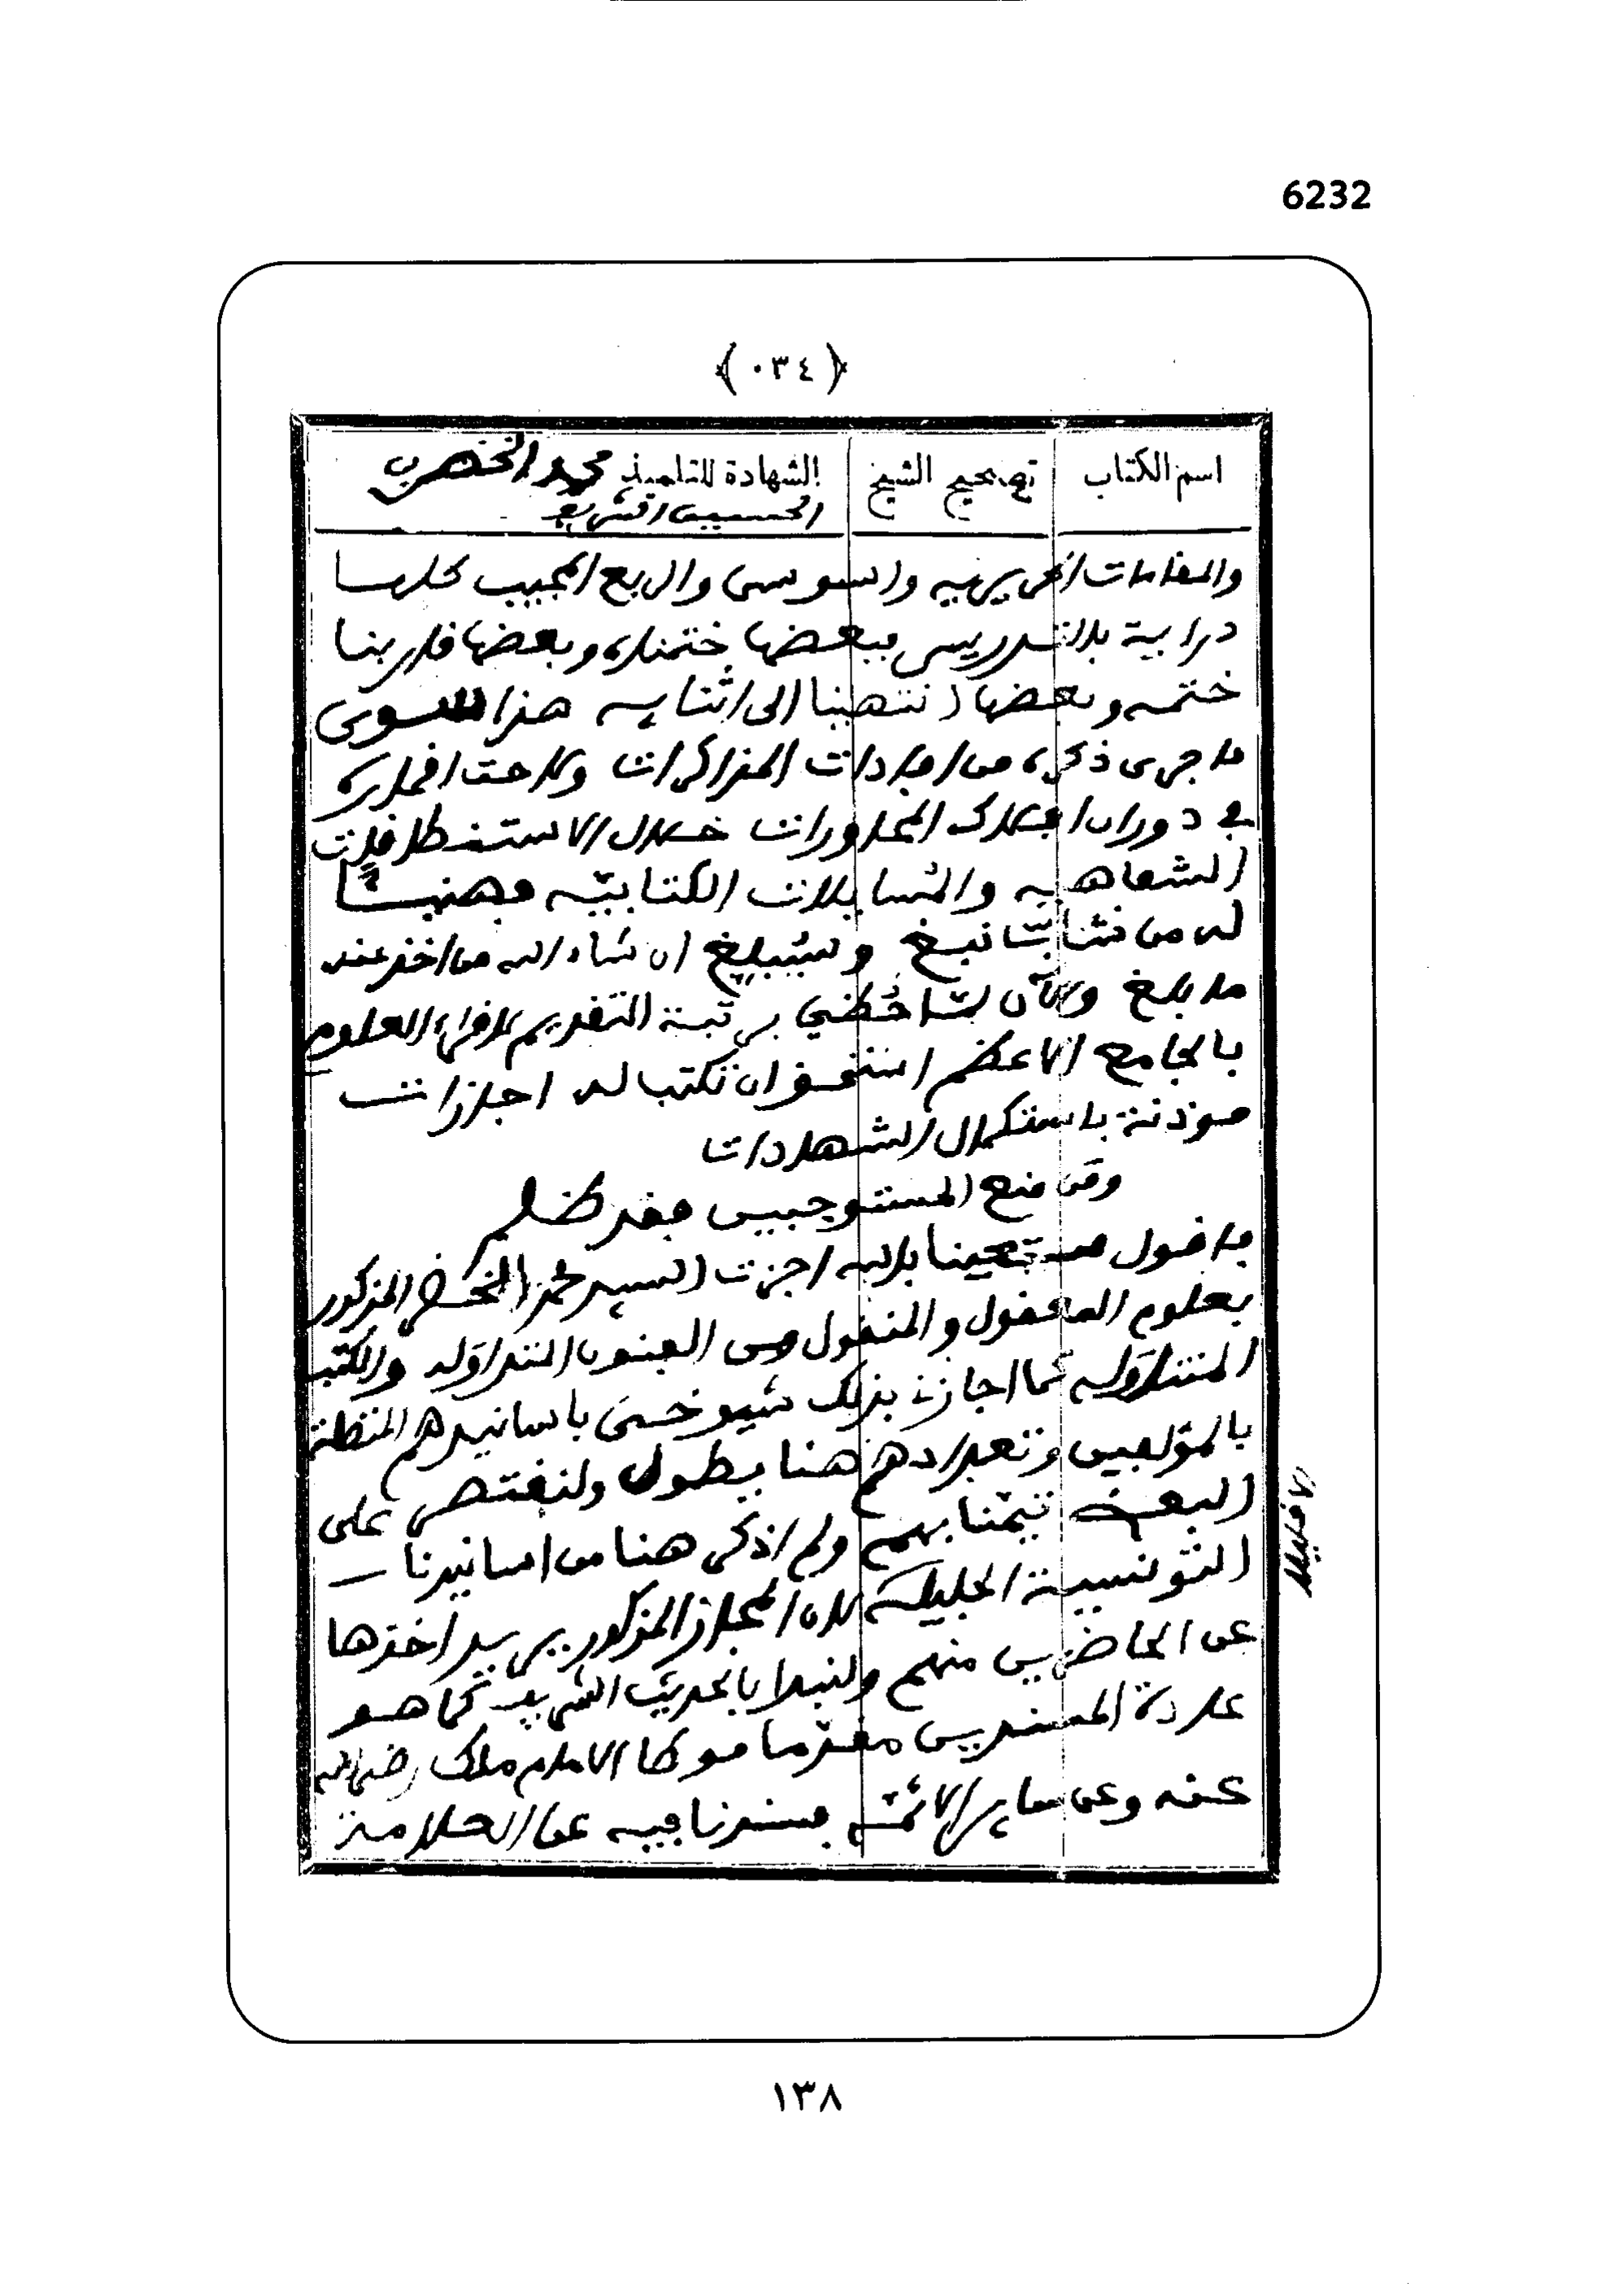 6232
﴿ ٠٣٤ ﴾
اسم الكتاب
تصحيح الشيخ
الشهادة للتلميذ محمد الخضر بن
الحسين الشريف
والمقامات الحريرية والسوسي والربع المجيب كلها
دراية بالتدريس فبعضها ختمناه وبعضها قاربنا
ختمه وبعضها انتهينا إلى اثنايه هذا سوى
ما جرى ذكره من افادات المذاكرات ولاحت افماره
في دوران افلاك المحاورات خلال الاستنطاقات
الشفاهيه والمسايلات الكتابيّه فهنيئًا
له من شاب نبغ وسيبلغ ان شاء الله من اخذ عنه
ما بلغ والآن لما حظي برتبة التقديم لاقراء العلوم
بالجامع الاعظم استحق ان تكتب له اجازات
موذنة باستكمال الشهادات
ومن منع المستوجبين فقد ظلم
فاقول مستعينا بالله اجزت السيد محمد الخضر المذكور
بعلوم المعقول والمنقول من الفنون المتداوله والكتب
المتناوله كما اجازني بذلك شيوخي باسانيدهم المتصلة
بالمؤلفين وتعدادهم هنا يطول ولنقتصر على
البعض تيمنا بهم ولم اذكر هنا من اسانيدنا
التونسية الجليله لان المجاز المذكور يريد اخذها
عن الحاضرين منهم ولنبدا بالحديث الشريف كما هو
عادة المسندين مقدما موطا الامام مالك رضي الله
عنه وعن ساير الائمه فسندنا فيه عن العلامة
١٣٨